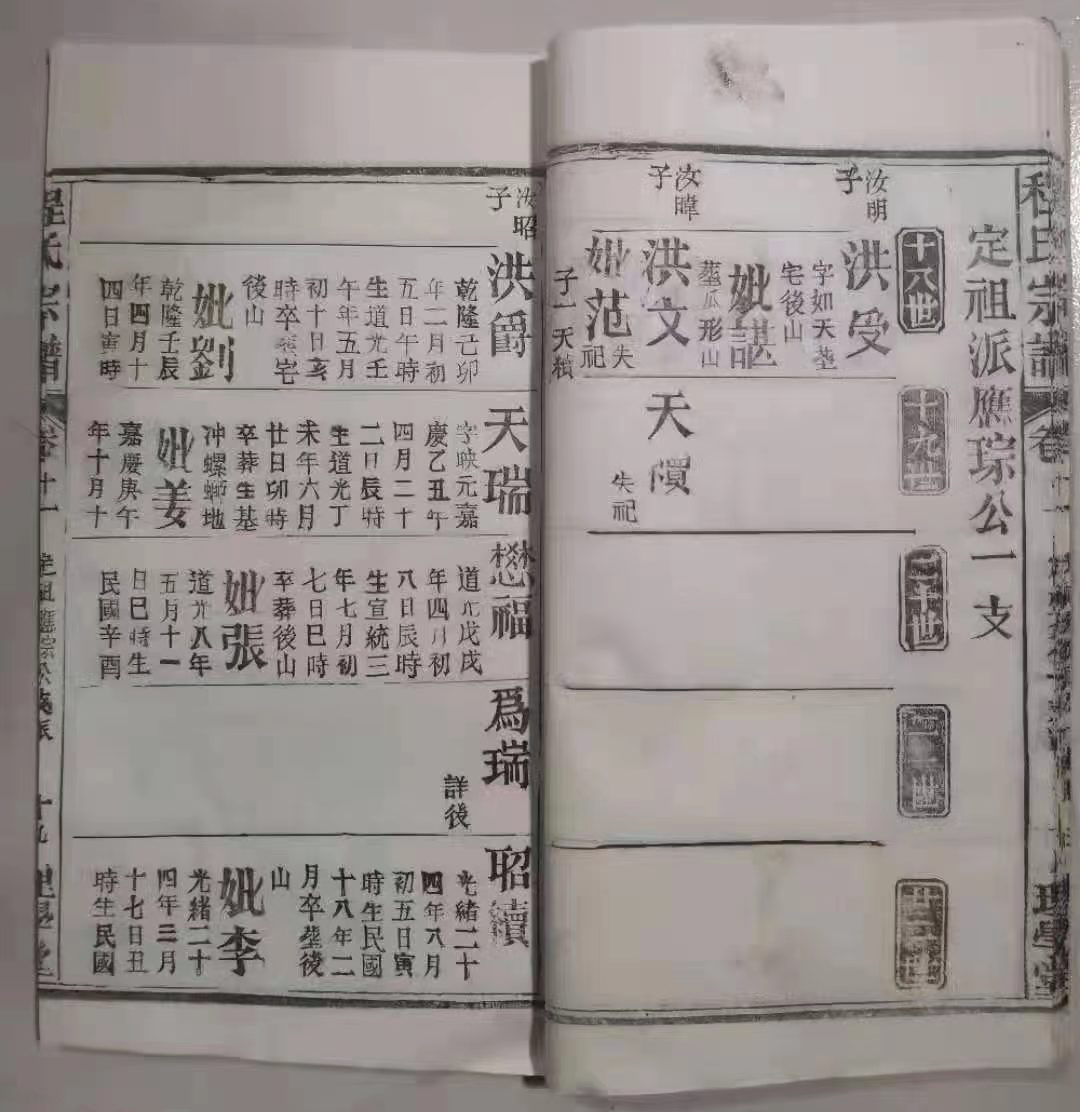 程氏宗譜
卷十一
理學堂
定祖派應琮公一支
十八世
十九世
二十世
廿一世
廿二世
汝明
子
洪受
字如天塟
宅後山
妣諶
塟瓜形山
汝暐
子
洪文
妣范
失
祀
子一天
天
失祀
汝昭
子
洪爵
乾隆己卯
年二月初
五日午時
生道光壬
午年五月
初十日亥
時卒塟宅
後山
妣劉
乾隆壬辰
年四月十
四日寅時
天瑞
字映元嘉
慶乙丑年
四月二十
二日辰時
生道光丁
未年六月
廿日卯時
卒葬生基
冲螺螄地
妣姜
嘉慶庚午
年十月十
懋福
道光戊戌
年四月初
八日辰時
生宣統三
年七月初
七日巳時
卒葬後山
妣張
道光八年
五月十一
日巳時生
民國辛酉
爲瑞
詳後
昭續
光緒二十
四年八月
初五日寅
時生民國
十八年二
月卒塟後
山
妣李
光緒二十
四年三月
十七日丑
時生民國
程氏宗譜
卷十一
十九
理學堂